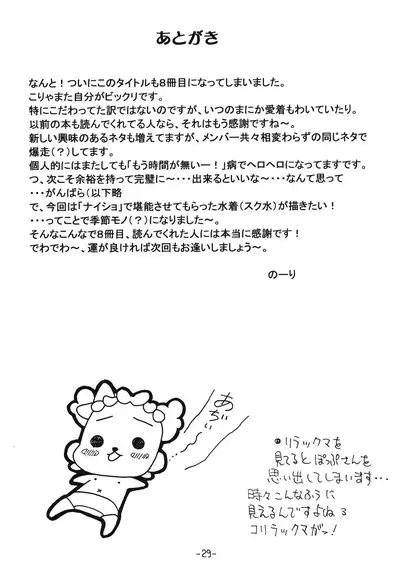 あとがき
なんと！ついにこのタイトルも８冊目になってしまいました。
こりゃまた自分がビックリです。
特にこだわってた訳ではないのですが、いつのまにか愛着もわいていたり。
以前の本も読んでくれてる人なら、それはもう感謝ですね～。
新しい興味のあるネタも増えてますが、メンバー共々相変わらずの同じネタで
爆走（？）してます。
個人的にはまたしても「もう時間が無いー！」病でヘロヘロになってますです。
つ、次こそ余裕を持って完璧に～・・・出来るといいな～・・・なんて思って
・・・がんばら（以下略
で、今回は「ナイショ」で堪能させてもらった水着（スク水）が描きたい！
・・・ってことで季節モノ（？）になりました～。
そんなこんなで８冊目、読んでくれた人には本当に感謝です！
でわでわ～、運が良ければ次回もお逢いしましょう～。
のーり
あぢぃ
リラックマを
見てるとぽっぷさんを
思い出してしまいます…
時々こんなふうに
見えるんですよねぇ
コリラックマが！
-29-